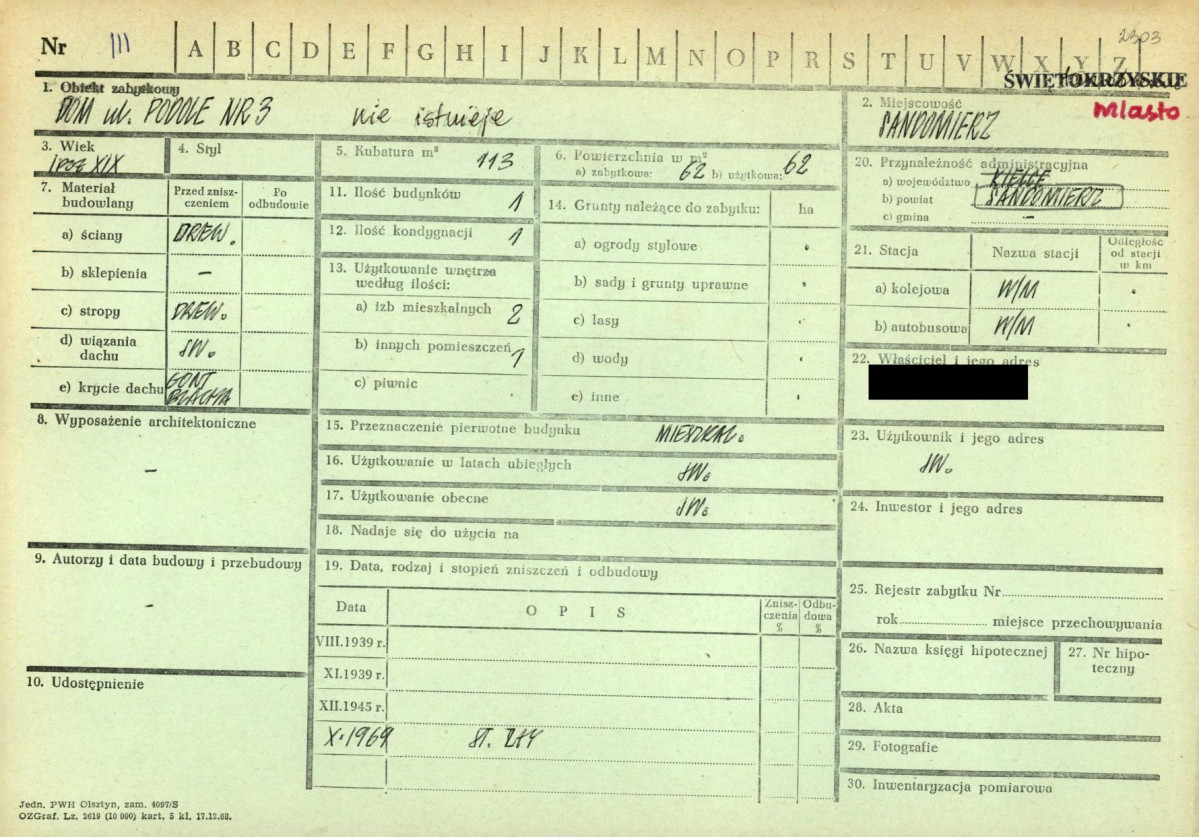 Nr III A B C D E F G H I J K L M N O P R S T U V W X Y Z 2303
ŚWIĘTOKRZYSKIE
1. Obiekt zabytkowy
DOM ul. PODOLE NR 3 nie istnieje
2. Miejscowość
SANDOMIERZ
Miasto
3. Wiek
I poł XIX
4. Styl
5. Kubatura m³ 113
6. Powierzchnia w m²
a) zabytkowa: 62 b) użytkowa: 62
7. Materiał budowlany
Przed zniszczeniem
Po odbudowie
a) ściany DREW.
b) sklepienia —
c) stropy DREW.
d) wiązania dachu JW.
e) krycie dachu GONT BLACHA
8. Wyposażenie architektoniczne
—
9. Autorzy i data budowy i przebudowy
—
10. Udostępnienie
11. Ilość budynków 1
12. Ilość kondygnacji 1
13. Użytkowanie wnętrza według ilości:
a) izb mieszkalnych 2
b) innych pomieszczeń 1
c) piwnic
14. Grunty należące do zabytku: ha
a) ogrody stylowe
b) sady i grunty uprawne
c) lasy
d) wody
e) inne
15. Przeznaczenie pierwotne budynku MIESZKAL.
16. Użytkowanie w latach ubiegłych JW.
17. Użytkowanie obecne JW.
18. Nadaje się do użycia na
19. Data, rodzaj i stopień zniszczeń i odbudowy
Data OPIS Zniszczenia % Odbudowa %
VIII.1939 r.
XI.1939 r.
XII.1945 r.
X.1969 ST. ZŁY
20. Przynależność administracyjna
a) województwo KIELCE
b) powiat SANDOMIERZ
c) gmina —
21. Stacja Nazwa stacji Odległość od stacji w km
a) kolejowa W/M
b) autobusowa W/M
22. Właściciel i jego adres
23. Użytkownik i jego adres
JW.
24. Inwestor i jego adres
25. Rejestr zabytku Nr
rok miejsce przechowywania
26. Nazwa księgi hipotecznej
27. Nr hipoteczny
28. Akta
29. Fotografie
30. Inwentaryzacja pomiarowa
Jedn. PWH Olsztyn, zam. 4097/S
OZGraf. Lz. 2619 (10 000) kart. 5 kl. 17.12.68.